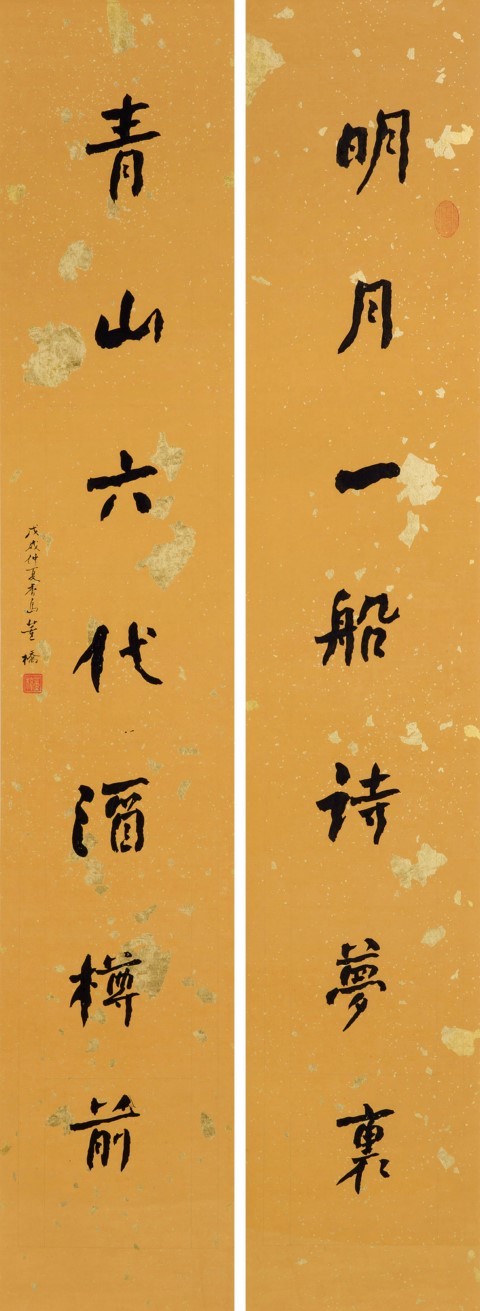 明月一船詩夢裏
青山六代酒樽前
戊戌仲夏香島董橋